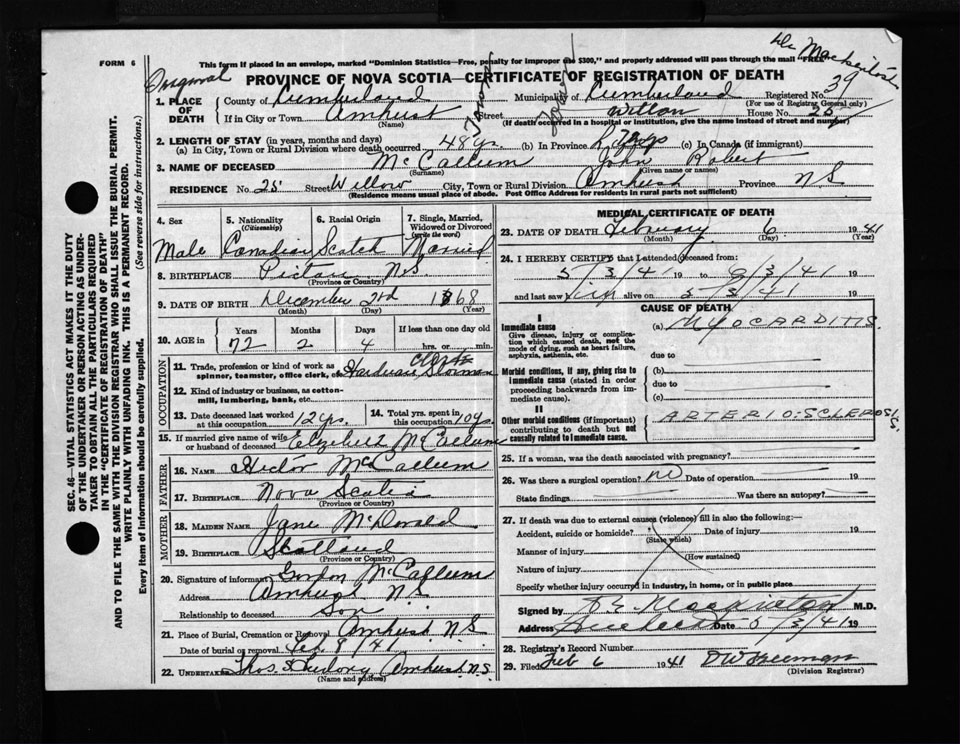 FORM 6
This form if placed in an envelope, marked "Dominion Statistics—Free, penalty for improper use $300," and properly addressed will pass through the mail "FREE"
Original
Dr Mackintosh
PROVINCE OF NOVA SCOTIA—CERTIFICATE OF REGISTRATION OF DEATH
1. PLACE OF DEATH
County of Cumberland Municipality of Cumberland Registered No. 39
(For use of Registrar General only)
If in City or Town Amherst Street Willow House No. 25
(Name) (If death occurred in a hospital or institution, give the name instead of street and number)
2. LENGTH OF STAY (in years, months and days)
(a) In City, Town or Rural Division where death occurred 48 yrs. (b) In Province (c) In Canada (if immigrant)
3. NAME OF DECEASED McCallum John Robert
(Surname) (Given name or names)
RESIDENCE No. 25 Street Willow City, Town or Rural Division Amherst Province N.S
(Residence means usual place of abode. Post Office Address for residents in rural parts not sufficient)
4. Sex
Male
5. Nationality
(Citizenship)
Canadian
6. Racial Origin
Scotch
7. Single, Married, Widowed or Divorced
(write the word)
Married
8. BIRTHPLACE Pictou N.S
(Province or Country)
9. DATE OF BIRTH December 2nd 1868
(Month) (Day) (Year)
10. AGE in
Years Months Days If less than one day old
72 2 4 hrs. or min.
OCCUPATION
11. Trade, profession or kind of work as spinner, teamster, office clerk, etc. Hardware Clerk
12. Kind of industry or business, as cotton-mill, lumbering, bank, etc.
13. Date deceased last worked at this occupation 12 yrs.
14. Total yrs. spent in this occupation 10 y.
15. If married give name of wife or husband of deceased Elizabeth McCallum
FATHER
16. NAME Hector McCallum
17. BIRTHPLACE Nova Scotia
(Province or Country)
MOTHER
18. MAIDEN NAME Jane McDonald
19. BIRTHPLACE Scotland
(Province or Country)
20. Signature of informant Gordon McCallum
Address Amherst N.S
Relationship to deceased Son
21. Place of Burial, Cremation or Removal Amherst N.S
Date of burial or removal Feb 8/41
22. UNDERTAKER Thos. Amherst N.S.
(Name and address)
MEDICAL CERTIFICATE OF DEATH
23. DATE OF DEATH February 6 1941
(Month) (Day) (Year)
24. I HEREBY CERTIFY that I attended deceased from:
5/3/41 19 to 9/3/41 19
and last saw him alive on 5/3/41 19
CAUSE OF DEATH
I
Immediate cause
Give disease, injury or complication which caused death, not the mode of dying, such as heart failure, asphyxia, asthenia, etc.
(a) MYOCARDITIS.
due to
Morbid conditions, if any, giving rise to immediate cause (stated in order proceeding backwards from immediate cause).
(b)
due to
(c)
II
Other morbid conditions (if important) contributing to death but not causally related to immediate cause.
ARTERIO-SCLEROSIS.
25. If a woman, was the death associated with pregnancy?
26. Was there a surgical operation? NO Date of operation 19
State findings Was there an autopsy?
27. If death was due to external causes (violence) fill in also the following:—
Accident, suicide or homicide? Date of injury 19
(State which)
Manner of injury
(How sustained)
Nature of injury
Specify whether injury occurred in industry, in home, or in public place
Signed by Mackintosh M.D.
Address Amherst Date 5/3/41 19
28. Registrar's Record Number
29. Filed Feb 6 1941 DW Freeman
(Division Registrar)
SEC. 46—VITAL STATISTICS ACT MAKES IT THE DUTY
OF THE UNDERTAKER OR PERSON ACTING AS UNDERTAKER TO OBTAIN ALL THE PARTICULARS REQUIRED
IN THE "CERTIFICATE OF REGISTRATION OF DEATH"
AND TO FILE THE SAME WITH THE DIVISION REGISTRAR WHO SHALL ISSUE THE BURIAL PERMIT.
WRITE PLAINLY WITH UNFADING INK. THIS IS A PERMANENT RECORD.
Every item of information should be carefully supplied. (See reverse side for instructions.)